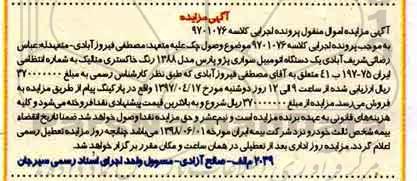 آگهی مزایده
آگهی مزایده اموال منقول پرونده اجرایی کلاسه ۹۷۰۱۰۷۶
به موجب پرونده اجرایی کلاسه ۹۷۰۱۰۷۶ موضوع وصول چک علیه متعهد: مصطفی فیروزآبادی- متعهدله: عباس
رضائی شریف آبادی یک دستگاه اتومبیل سواری پژو پارس مدل ۱۳۸۸ رنگ خاکستری متالیک به شماره انتظامی
ایران ۷۵-۱۹۷ ب ۴۱ متعلق به آقای مصطفی فیروزآبادی که طبق نظر کارشناس رسمی به مبلغ ۳۷۰۰۰۰۰۰۰
ریال ارزیابی شده از ساعت ۹ الی ۱۲ روز دوشنبه مورخ ۱۳۹۷/۰۴/۱۷ واقع در پارکینگ پیام از طریق مزایده به
فروش می‌رسد. مزایده از مبلغ ۳۷۰۰۰۰۰۰۰ ریال شروع و به بالاترین قیمت پیشنهادی نقدا فروخته می‌شود و کلیه
هزینه‌های قانونی به عهده برنده مزایده است و نیم عشر و حق مزایده نقدا وصول خواهد شد ضمنا تاریخ انقضاء
بیمه شخص ثالث خودرو نزد شرکت بیمه ایران مورخه ۱۳۹۸/۰۶/۰۱ می‌باشد چنانچه روز مزایده تعطیل رسمی
اعلام گردد، مزایده روز اداری بعد از تعطیلی در همان ساعت و مکان مقرر برگزار خواهد شد.
۲۰۳۹ م‌الف- صالح آزادی- مسوول واحد اجرای اسناد رسمی سیرجان